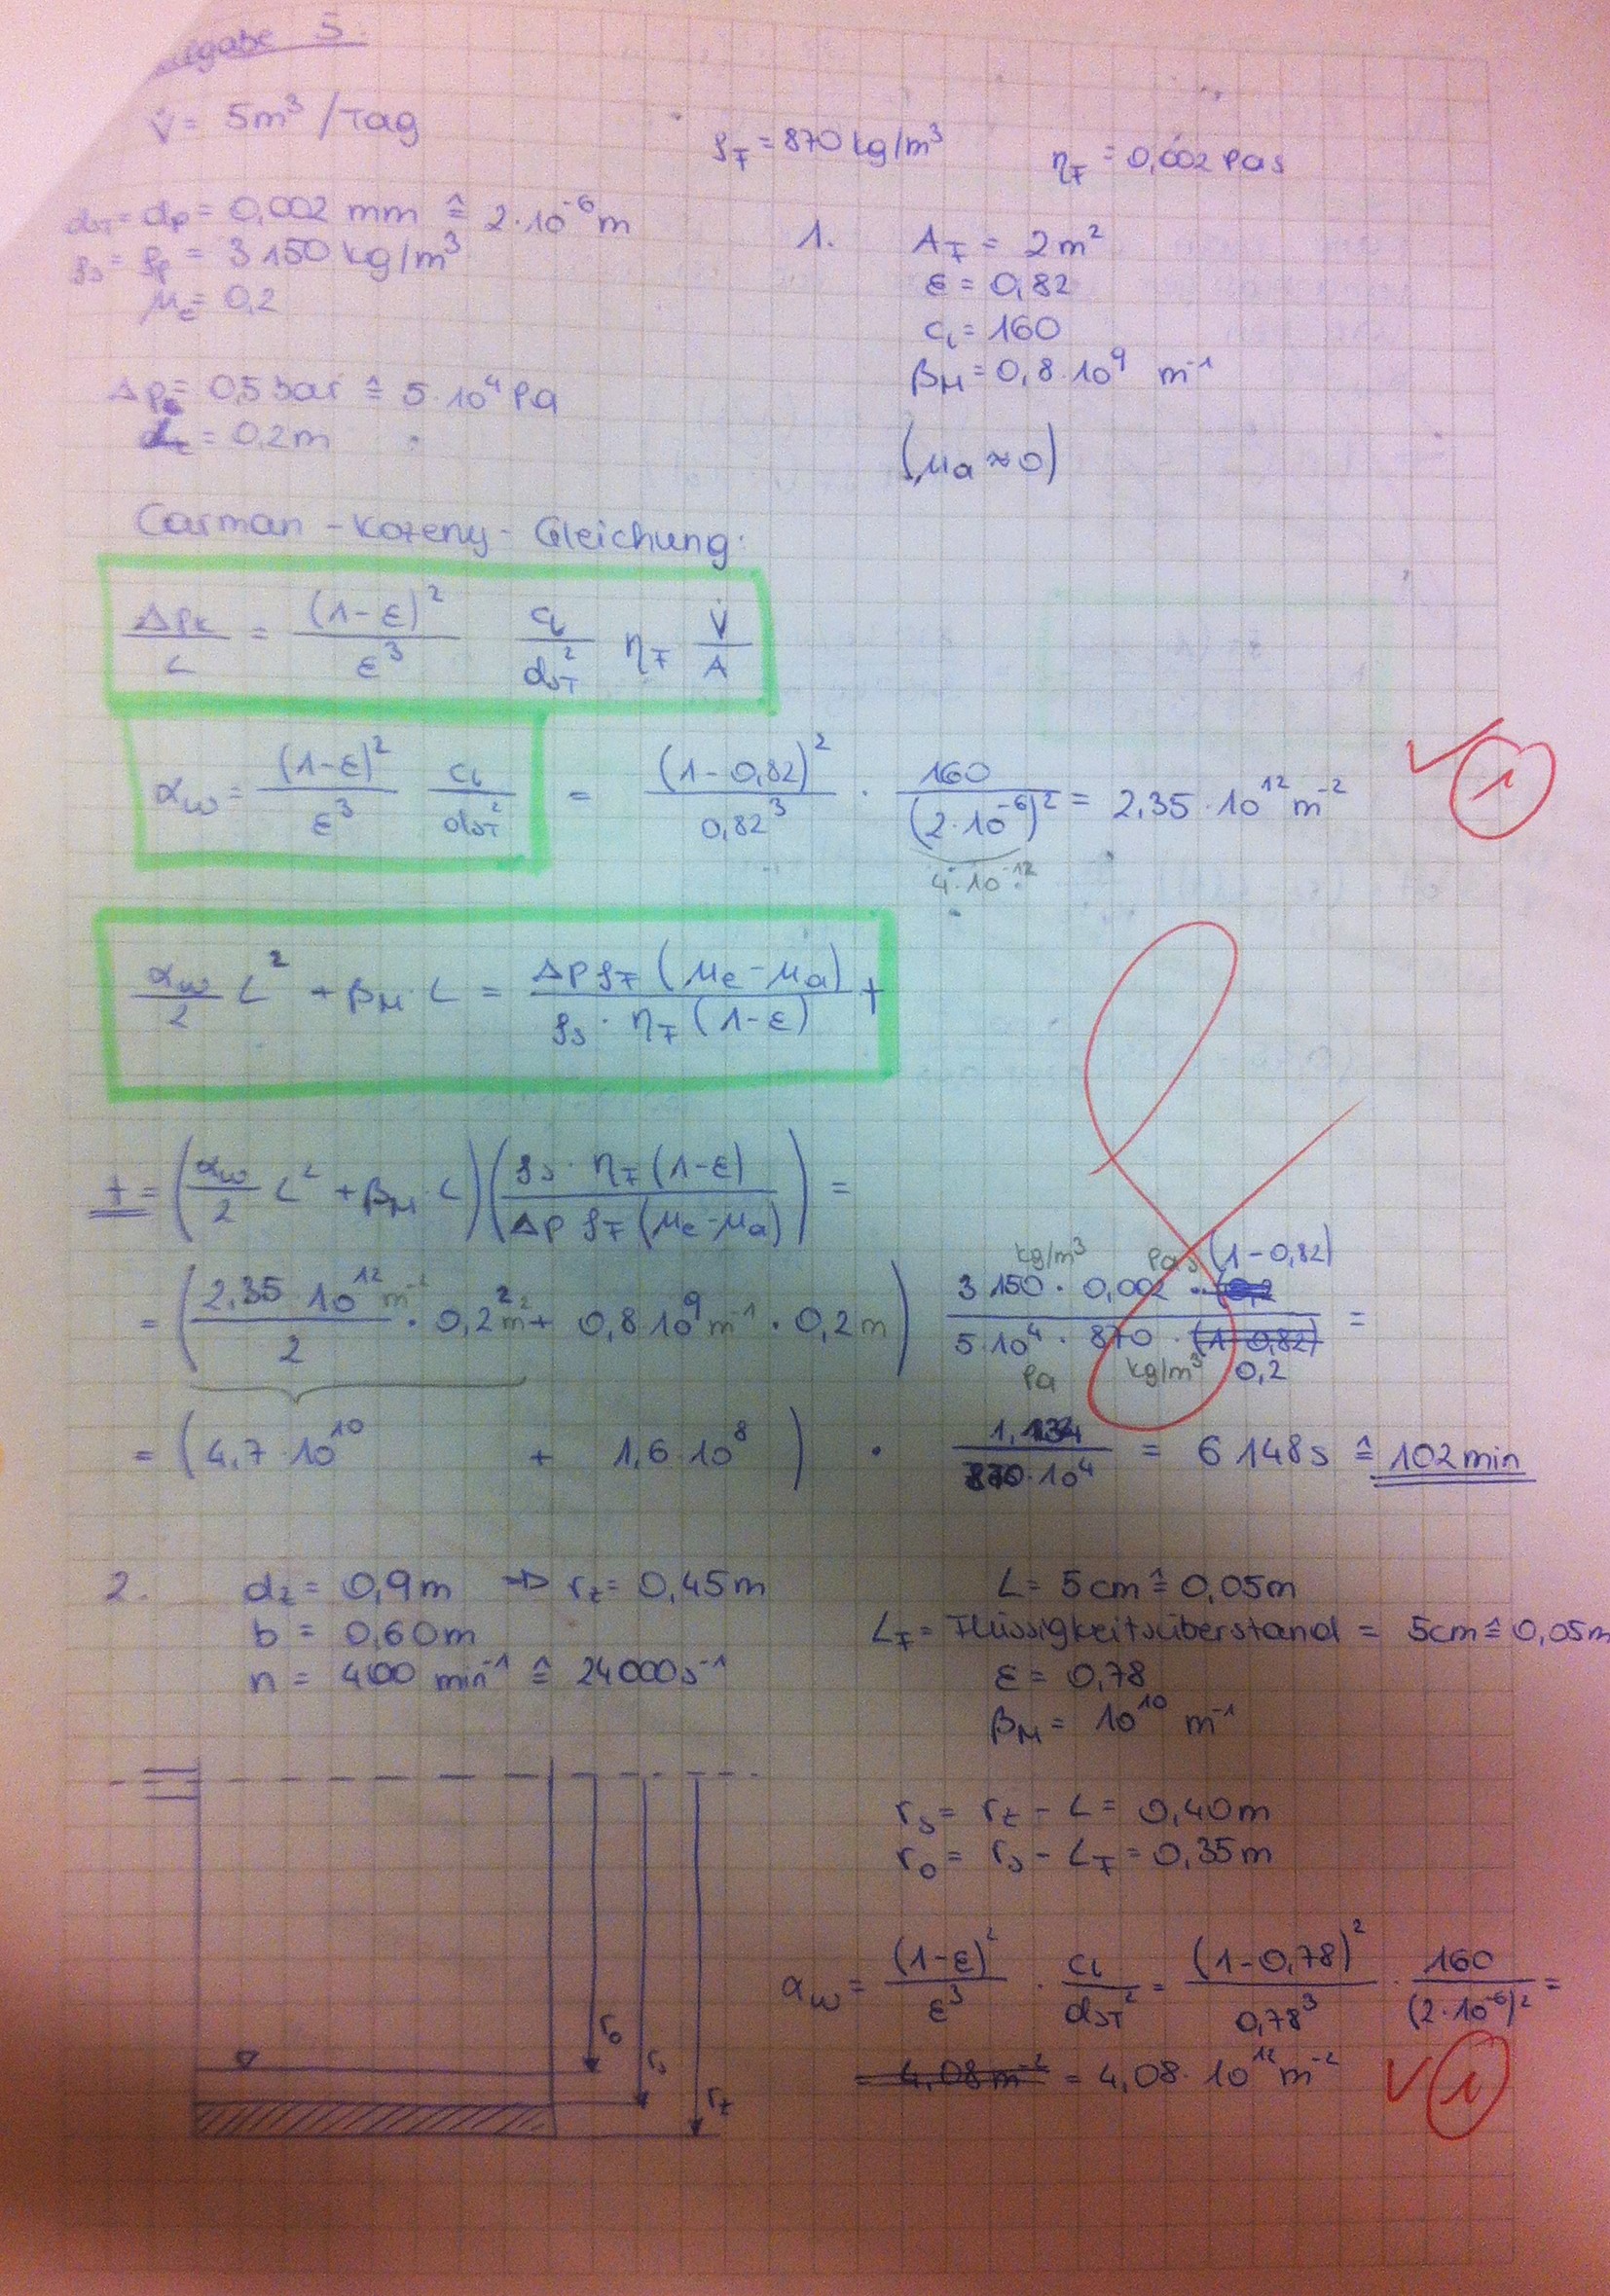 igabe 5.
V̇ = 5m³/Tag
ρ_F = 870 kg/m³   η_F = 0,002 Pas
d_ST = d_P = 0,002 mm ≙ 2·10⁻⁶ m
ρ_s = ρ_P = 3150 kg/m³
μ_e = 0,2
1.   A_F = 2m²
ε = 0,82
c_i = 160
β_M = 0,8·10⁹ m⁻¹
(μ_a ≈ 0)
Δp = 0,5 bar ≙ 5·10⁴ Pa
= 0,2m
Carman-Kozeny-Gleichung:
Δp_K / L = (1-ε)² / ε³   c_i / d_ST²   η_F   V̇ / A
α_W = (1-ε)² / ε³   c_i / d_ST² = (1-0,82)² / 0,82³ · 160 / (2·10⁻⁶)² = 2,35·10¹² m⁻²   ✓ 1
4·10⁻¹²
α_W / 2 L² + β_M · L = Δp ρ_F (μ_e - μ_a) / ρ_s · η_F (1-ε) t
t = (α_W / 2 L² + β_M · L) (ρ_s · η_F (1-ε) / Δp ρ_F (μ_e - μ_a)) =
= (2,35·10¹² m⁻² / 2 · 0,2² m² + 0,8·10⁹ m⁻¹ · 0,2 m) 3150 kg/m³ · 0,002 Pas · (1-0,82) / 5·10⁴ Pa · 870 kg/m³ · 0,2 =
= (4,7·10¹⁰ + 1,6·10⁸) · 1,134 / 870·10⁴ = 6148s ≙ 102 min
2.   d_z = 0,9m ⇒ r_z = 0,45m
b = 0,60m
n = 400 min⁻¹ ≙ 24000s⁻¹
L = 5cm ≙ 0,05m
L_F = Flüssigkeitsüberstand = 5cm ≙ 0,05m
ε = 0,78
β_M = 10¹⁰ m⁻¹
r_s = r_z - L = 0,40m
r_0 = r_s - L_F = 0,35m
r_0
r_s
r_z
α_W = (1-ε)² / ε³ · c_i / d_ST² = (1-0,78)² / 0,78³ · 160 / (2·10⁻⁶)² =
= 4,08 m⁻² = 4,08·10¹² m⁻²   ✓ 1